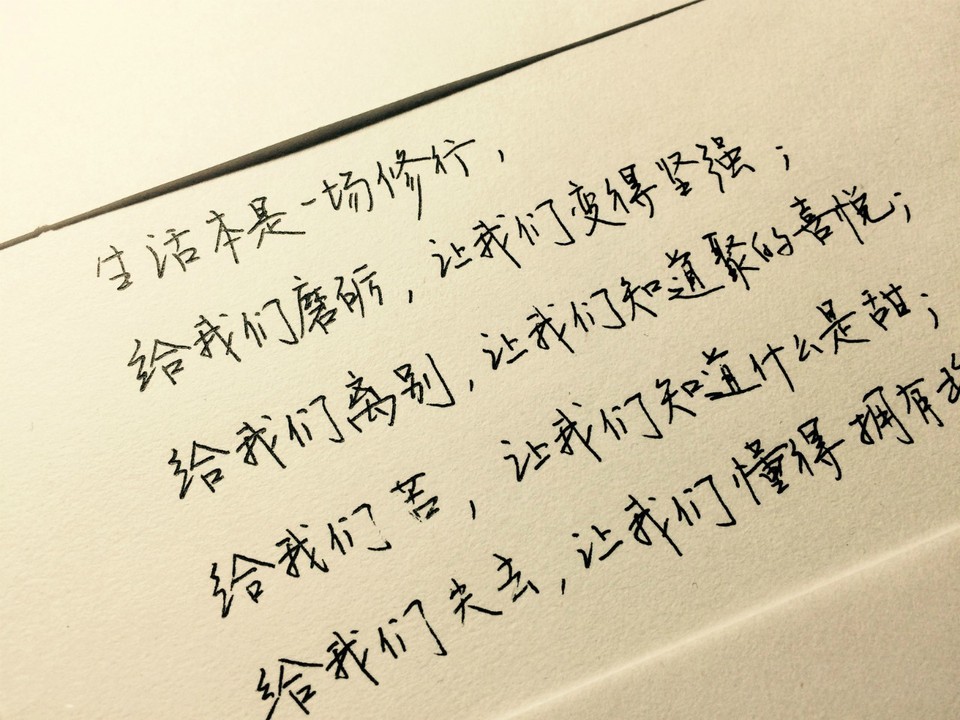 生活本是一场修行，
给我们磨砺，让我们变得坚强；
给我们离别，让我们知道聚的喜悦；
给我们苦，让我们知道什么是甜；
给我们失去，让我们懂得拥有